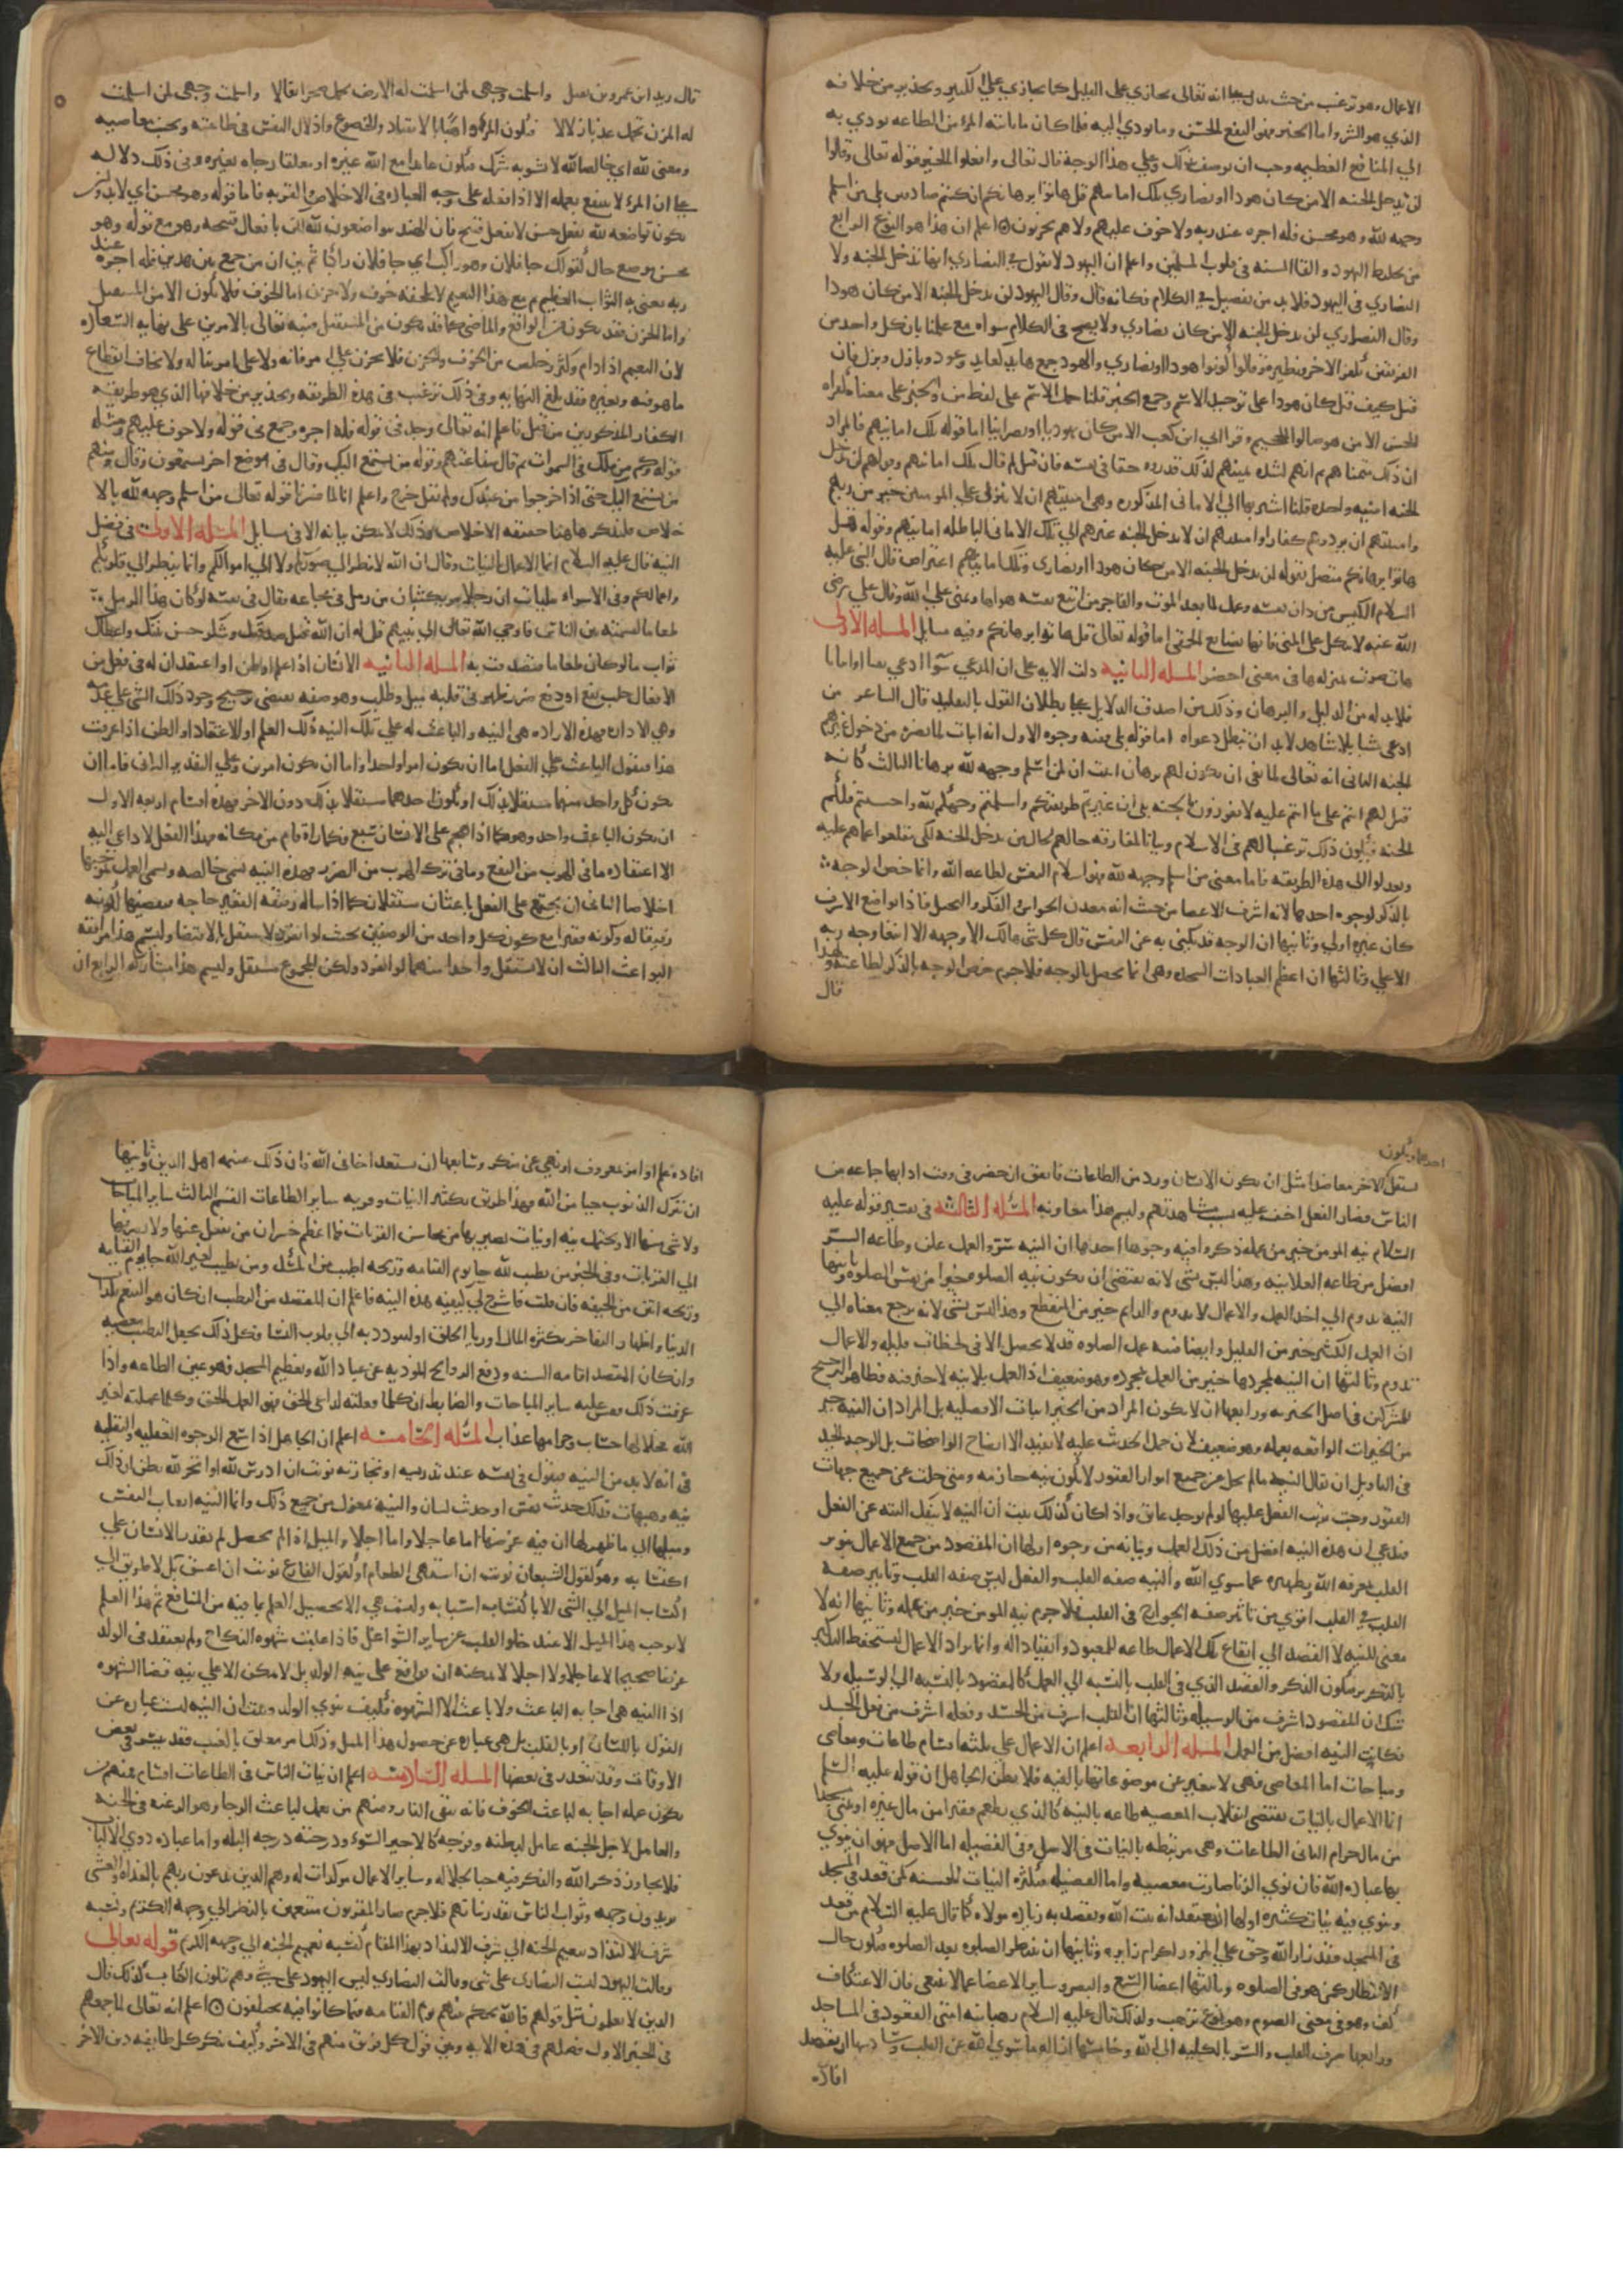 الاعمال وهو ترغيب من حيث يدل على انه تعالى يجازي على القليل كما يجازي على الكثير ويحذير من خلافه
الذي هو الشر واما الخير فهو النفع الحسن وما يودي اليه فلما كان ما ياتيه المرء من الطاعه يودي به
الي المنافع العظيمه وجب ان يوصف بذلك وعلي هذا الوجه قال تعالى وافعلوا الخير قوله تعالى وقالوا
لن يدخل الجنه الا من كان هودا او نصاري تلك امانيهم قل هاتوا برهانكم ان كنتم صادقين بلى من اسلم
وجهه لله وهو محسن فله اجره عند ربه ولا خوف عليهم ولا هم يحزنون اعلم ان هذا هو النوع الرابع
من تخليط اليهود والقا الشبه في قلوب المسلمين واعلم ان اليهود لا تقول في النصاري انها تدخل الجنه ولا
النصاري في اليهود فلا بد من تفصيل في الكلام فكانه قال وقال اليهود لن يدخل الجنه الا من كان هودا
وقال النصاري لن يدخل الجنه الا من كان نصاري ولا يصح في الكلام سواه مع علمنا بان كل واحد من
الفريقين يكفر الاخر ونظيره وقالوا كونوا هودا او نصاري والهود جمع هايد كعايد وعود وبازل وبزل فان
قيل كيف قيل كان هودا على توحيد الاسم وجمع الخبر قلنا حمل الاسم على لفظ من والخبر على معناه كقراه
الحسن الا من هو صالوا الجحيم وقرا ابي ابن كعب الا من كان يهوديا او نصرانيا اما قوله تلك امانيهم فالمراد
ان ذلك متمناهم ثم انهم لشده تمنيهم لذلك قدروه حقا في نفسه فان قيل لم قال تلك امانيهم وقولهم لن يدخل
الجنه امنيه واحده قلنا اشير بها الي الاماني المذكوره وهي امنيتهم ان لا ينزل علي المومنين خير من ربهم
وامنيتهم ان يردوهم كفارا وامنيتهم ان لا يدخل الجنه غيرهم اي تلك الاماني الباطله امانيهم وقوله قل
هاتوا برهانكم متصل بقوله لن يدخل الجنه الا من كان هودا او نصارى وتلك امانيهم اعتراض قال النبي عليه
السلام الكيس من دان نفسه وعمل لما بعد الموت والفاجر من اتبع نفسه هواها وتمنى على الله وقال علي رضى
الله عنه لا يتكل على المنى فانها بضايع الحمقى اما قوله تعالى قل هاتوا برهانكم وفيه مسايل المسله الاولى
هات صوت بمنزله ها في معنى احضر المسله الثانيه دلت الايه على ان المدعي سوا ادعي نفيا او اثباتا
فلا بد له من الدليل والبرهان وذلك من اصدق الدلايل على بطلان القول بالتقليد قال الشاعر من
ادعى شيا بلا شاهد لابد ان تبطل دعواه اما قوله بلى ففيه وجوه الاول انه اثبات لما نفوه من دخول غيرهم
الجنه الثانى انه تعالى لما نفى ان يكون لهم برهان اثبت ان لمن اسلم وجهه لله برهانا الثالث كانه
قيل لهم انتم على ما انتم عليه لا تفوزون بالجنه بلى ان غيرتم طريقتكم واسلمتم وجهكم لله واحسنتم فلكم
الجنه فيكون ذلك ترغيبا لهم في الاسلام وبيانا لمفارقه حالهم لحال من يدخل الجنه لكى يقلعوا عما هم عليه
ويعدلوا الى هذه الطريقه فاما معنى من اسلم وجهه لله فهو اسلام النفس لطاعه الله وانما خص الوجه
بالذكر لوجوه احدها لانه اشرف الاعضا من حيث انه معدن الحواس والفكر والتخيل فاذا تواضع الاشرف
كان غيره اولي وثانيها ان الوجه قد يكنى به عن النفس قال كل شى هالك الا وجهه الا ابتغا وجه ربه
الاعلي وثالثها ان اعظم العبادات السجده وهى انما تحصل بالوجه فلا جرم خص الوجه بالذكر لطاعته ولهذا
قال
قال زيد ابن عمرو بن نفيل واسلمت وجهى لمن اسلمت له الارض تحمل صخرا ثقالا واسلمت وجهى لمن اسلمت
له المزن تحمل عذبا زلالا فيكون المرء واهبا الانقياد والخضوع واذلال النفس فى طاعته وتجنب معاصيه
ومعنى لله اي خالصا لله لا يشوبه شرك فيكون عابدا مع الله غيره او معلقا رجاه بغيره وفى ذلك دلاله
على ان المرء لا ينتفع بعمله الا اذا فعله على وجه العباده فى الاخلاص والقربه فاما قوله وهو محسن اي لا بد وان
يكون تواضعه لله بفعل حسن لا بفعل قبيح فان الهند يتواضعون لله لكن بافعال قبيحه وهو مع قوله وهو
محسن موضع حال كقولك جا فلان وهو راكب اي جا فلان راكبا ثم بين ان من جمع بين هذين فله اجره عند
ربه يعنى به الثواب العظيم ثم مع هذا النعيم لا يلحقه خوف ولا حزن اما الخوف فلا يكون الا من المستقبل
واما الحزن فقد يكون من الواقع والماضي كما قد يكون من المستقبل فنبه تعالى بالامرين على نهايه السعاده
لان النعيم اذا دام وكثر وخلص من الخوف والحزن فلا يحزن على امر فاته ولا على امر يناله ولا يخاف انقطاع
ما هو فيه وتغيره فقد بلغ النهايه وفى ذلك ترغيب فى هذه الطريقه وتحذير من خلافها الذي هو طريقه
الكفار المذكورين من قبل فاعلم انه تعالى وحد فى قوله فله اجره وجمع فى قوله ولا خوف عليهم ومثله
قوله وكم من ملك فى السموات ثم قال شفاعتهم وقوله من يستمع اليك وقال فى موضع اخر يستمعون وقال ومنهم
من يستمع اليك حتى اذا خرجوا من عندك ولم يقل خرج واعلم انا لما فسرنا قوله تعالى من اسلم وجهه لله بالا
خلاص فلنذكر هاهنا حقيقه الاخلاص وذلك لا يمكن بيانه الا فى مسايل المسله الاولى فى فضل
النيه قال عليه السلام انما الاعمال بالنيات وقال ان الله لا ينظر الى صوركم ولا الى اموالكم وانما ينظر الى قلوبكم
واعمالكم وفى الاسراييليات ان رجلا مر بكثبان من رمل فى مجاعه فقال فى نفسه لو كان هذا الرمل
طعاما لقسمته بين الناس فاوحي الله تعالى الى نبيهم قل له ان الله قبل صدقتك وشكر حسن نيتك واعطاك
ثواب ما لو كان طعاما فتصدقت به المسله الثانيه الانسان اذا علم او ظن او اعتقد ان له فى فعل من
الافعال جلب نفع او دفع ضر يظهر فى قلبه ميل وطلب وهو صفه تقتضى ترجيح وجود ذلك الشى على عدمه
وهي الاراده فهذه الاراده هى النيه والباعث له علي تلك النيه ذلك العلم او الاعتقاد او الظن اذا عرفت
هذا فنقول الباعث علي الفعل اما ان يكون امرا واحدا واما ان يكون امرين وعلي التقدير الثانى فاما ان
يكون كل واحد منهما مستقلا بذلك او يكون احدهما مستقلا بذلك دون الاخر فهذه اقسام اربعه الاول
ان يكون الباعث واحد وهو كما اذا هجم على الانسان سبع فكما راه قام من مكانه فهذا الفعل لا داعي اليه
الا اعتقاده ما فى الهرب من النفع وما فى ترك الهرب من الضرر فهذه النيه تسمى خالصه ويسمى العمل بموجبها
اخلاصا الثانى ان يجتمع على الفعل باعثان مستقلان كما اذا ساله رفيقه الفقير حاجه فيقضيها لكونه
رفيقا له وكونه فقيرا مع كون كل واحد من الوصفين بحيث لو انفرد لاستقل بالاقتضا وليسم هذا مرافقه
البواعث الثالث ان لا يستقل واحدا منهما لو انفرد ولكن المجموع مستقل وليسم هذا مشاركه الرابع ان
احدهما ويكون
يستقل الاخر معاضدا مثل ان يكون الانسان ورد من الطاعات فاتفق ان حضر فى وقت ادايها جماعه من
الناس فصار الفعل اخف عليه بسبب مشاهدتهم وليسم هذا معاونه المسله الثالثه فى تفسير قوله عليه
السلام نيه المومن خير من عمله ذكروا فيه وجوها احدها ان النيه سر والعمل علن وطاعه السر
افضل من طاعه العلانيه وهذا ليس بشى لانه يقتضى ان يكون نيه الصلوه خيرا من نفس الصلوه وثانيها
النيه تدوم الي اخر العمل والاعمال لا تدوم والدايم خير من المنقطع وهذا ليس بشي لانه يرجع معناه الي
ان العمل الكثير خير من القليل وايضا فنيه عمل الصلوه قد لا تحصل الا فى لحظات قليله والاعمال
تدوم وثالثها ان النيه بمجردها خير من العمل بمجرده وهو ضعيف اذ العمل بلا نيه لا خير فيه فظاهر الترجيح
للمشتركين فى اصل الخيريه ورابعها ان لا يكون المراد من الخير اثبات الافضليه بل المراد ان النيه خير
من الخيرات الواقعه بعمله وهو ضعيف لان حمل الحديث عليه لا يفيد الا ايضاح الواضحات بل الوجه الجيد
فى التاويل ان يقال النيه ما لم تخل عن جميع انواع الفتور لا تكون نيه جازمه ومتى خلت عن جميع جهات
الفتور وجب ترتب الفعل عليها لو لم يوجد عايق واذا كان كذلك ثبت ان النيه لا تنفك البته عن الفعل
فندعي ان هذه النيه افضل من ذلك العمل وبيانه من وجوه اولها ان المقصود من جميع الاعمال تنوير
القلب بمعرفه الله وتطهيره عما سوي الله والنيه صفه القلب والفعل ليس صفه القلب وتاثير صفه
القلب في القلب اقوي من تاثير صفه الجوارح فى القلب فلا جرم نيه المومن خير من عمله وثانيها انه لا
معنى للنيه الا القصد الي ايقاع تلك الاعمال طاعه للمعبود وانقيادا له وانما يراد الاعمال ليستحفظ التذكر
بالتكرير فيكون الذكر والقصد الذي فى القلب بالنسبه الي العمل كالمقصود بالنسبه الي الوسيله ولا
شك ان المقصود اشرف من الوسيله وثالثها ان القلب اشرف من الجسد وفعله اشرف من فعل الجسد
فكانت النيه افضل من العمل المسله الرابعه اعلم ان الاعمال علي ثلثه اقسام طاعات ومعاصى
ومباحات اما المعاصى فهى لا تتغير عن موضوعاتها بالنيه فلا يظن الجاهل ان قوله عليه السلم
انما الاعمال بالنيات يقتضى انقلاب المعصيه طاعه بالنيه كالذي يطعم فقيرا من مال غيره او يبنى مسجدا
من مال حرام الثانى الطاعات وهى مرتبطه بالنيات فى الاصل وفى الفضيله اما الاصل فهو ان ينوي
بها عباده الله فان نوي الريا صارت معصيه واما الفضيله فبكثره النيات الحسنه كمن قعد فى المسجد
وينوي فيه نيات كثيره اولها ان يعتقد انه بيت الله ويقصد به زياره مولاه كما قال عليه السلام من قعد
فى المسجد فقد زار الله وحق على المزور اكرام زايره وثانيها ان ينتظر الصلوه بعد الصلوه فيكون حال
الانتظار كمن هو فى الصلوه وثالثها اغضا السمع والبصر وساير الاعضا عما لا ينبغى فان الاعتكاف
كف وهو فى معنى الصوم وهو نوع ترهب ولذلك قال عليه السلام رهبانيه امتى القعود فى المساجد
ورابعها صرف القلب والسر بالكليه الى الله وخامسها ازاله ما سوي الله عن القلب وسادسها ان يقصد
افاده
افاده علم او امر بمعروف او نهي عن منكر وسابعها ان يستفيد اخا فى الله فان ذلك غنيمه اهل الدين وثامنها
ان يترك الذنوب حيا من الله فهذا طريق تكثير النيات وقس به ساير الطاعات القسم الثالث ساير المباحات
ولا شى منها الا ويحتمل نيه او نيات يصير بها من محاسن القربات فما اعظم خسران من يغفل عنها ولا يصرفها
الي القربات وفي الخبر من تطيب لله جا يوم القيامه وريحه اطيب من المسك ومن تطيب لغير الله جا يوم القيامه
وريحه انتن من الجيفه فان قلت فاشرح لى كيفيه هذه النيه فاعلم ان القصد من التطيب ان كان هو التنعم بلذات
الدنيا واظهار التفاخر بكثره المال او ريا الخلق او ليتودد به الي قلوب النسا فكل ذلك يجعل التطيب معصيه
وان كان القصد اقامه السنه ودفع الروائح الموذيه عن عباد الله وتعظيم المسجد فهو عين الطاعه واذا
عرفت ذلك فقس عليه ساير المباحات والضابط ان كلما فعلته لداعى الحق فهو العمل الحق وكلما عملته لغير
الله فحلالها حساب وحرامها عذاب المسله الخامسه اعلم ان الجاهل اذا سمع الوجوه العقليه والنقليه
فى انه لا بد من النيه فيقول فى نفسه عند تدريسه او تجارته نويت ان ادرس لله او اتجر لله يظن ان ذلك
نيه وهيهات فذلك حديث نفس او حديث لسان والنيه بمعزل من جميع ذلك وانما النيه انبعاث النفس
وميلها الي ما ظهر لها ان فيه غرضها اما عاجلا واما اجلا والميل اذا لم يحصل لم يقدر الانسان علي
اكتسابه وهو كقول الشبعان نويت ان اشتهي الطعام او كقول الفارغ نويت ان اعشق بل لا طريق الى
اكتساب الميل الي الشى الا باكتساب اسبابه وليست هي الا تحصيل العلم بما فيه من المنافع ثم هذا العلم
لا يوجب هذا الميل الا عند خلو القلب عن ساير الشواغل فاذا غلبت شهوه النكاح ولم يعتقد فى الولد
غرضا صحيحا لا عاجلا ولا اجلا لا يمكنه ان يواقع على نيه الولد بل لا يمكن الا علي نيه قضا الشهوه
اذا النيه هى اجابه الباعث ولا باعث الا الشهوه فكيف ينوي الولد وثبت ان النيه ليست عباره عن
القول باللسان او بالقلب بل هى عباره عن حصول هذا الميل وذلك امر معلق بالغيب فقد يتيسر فى بعض
الاوقات وقد يتعذر فى بعضها المسله السادسه اعلم ان نيات الناس فى الطاعات اقسام فمنهم من
يكون عمله اجابه لباعث الخوف فانه يتقى النار ومنهم من يعمل لباعث الرجا وهو الرغبه فى الجنه
والعامل لاجل الجنه عامل لبطنه وفرجه كالاجير السوء ودرجته درجه البله واما عباده ذوي الالباب
فلا تجاوز ذكر الله والفكر فيه حبا لجلاله وساير الاعمال موكدات له وهم الذين يدعون ربهم بالغداه والعشى
يريدون وجهه وثواب الناس بقدر نياتهم فلا جرم صار المقربون متنعمين بالنظر الي وجهه الكريم ونسبه
شرف الالتذاذ بنعيم الجنه الي شرف الالتذاذ بهذا المقام كنسبه نعيم الجنه الي وجهه الكريم قوله تعالى
وقالت اليهود ليست النصارى على شى وقالت النصاري ليس اليهود على شى وهم يتلون الكتاب كذلك قال
الذين لا يعلمون مثل قولهم فالله يحكم بينهم يوم القيامه فيما كانوا فيه يختلفون اعلم انه تعالى لما جمعهم
فى الخبر الاول فصلهم فى هذه الايه وبين قول كل فريق منهم فى الاخر وكيف ينكر كل طايفه دين الاخر